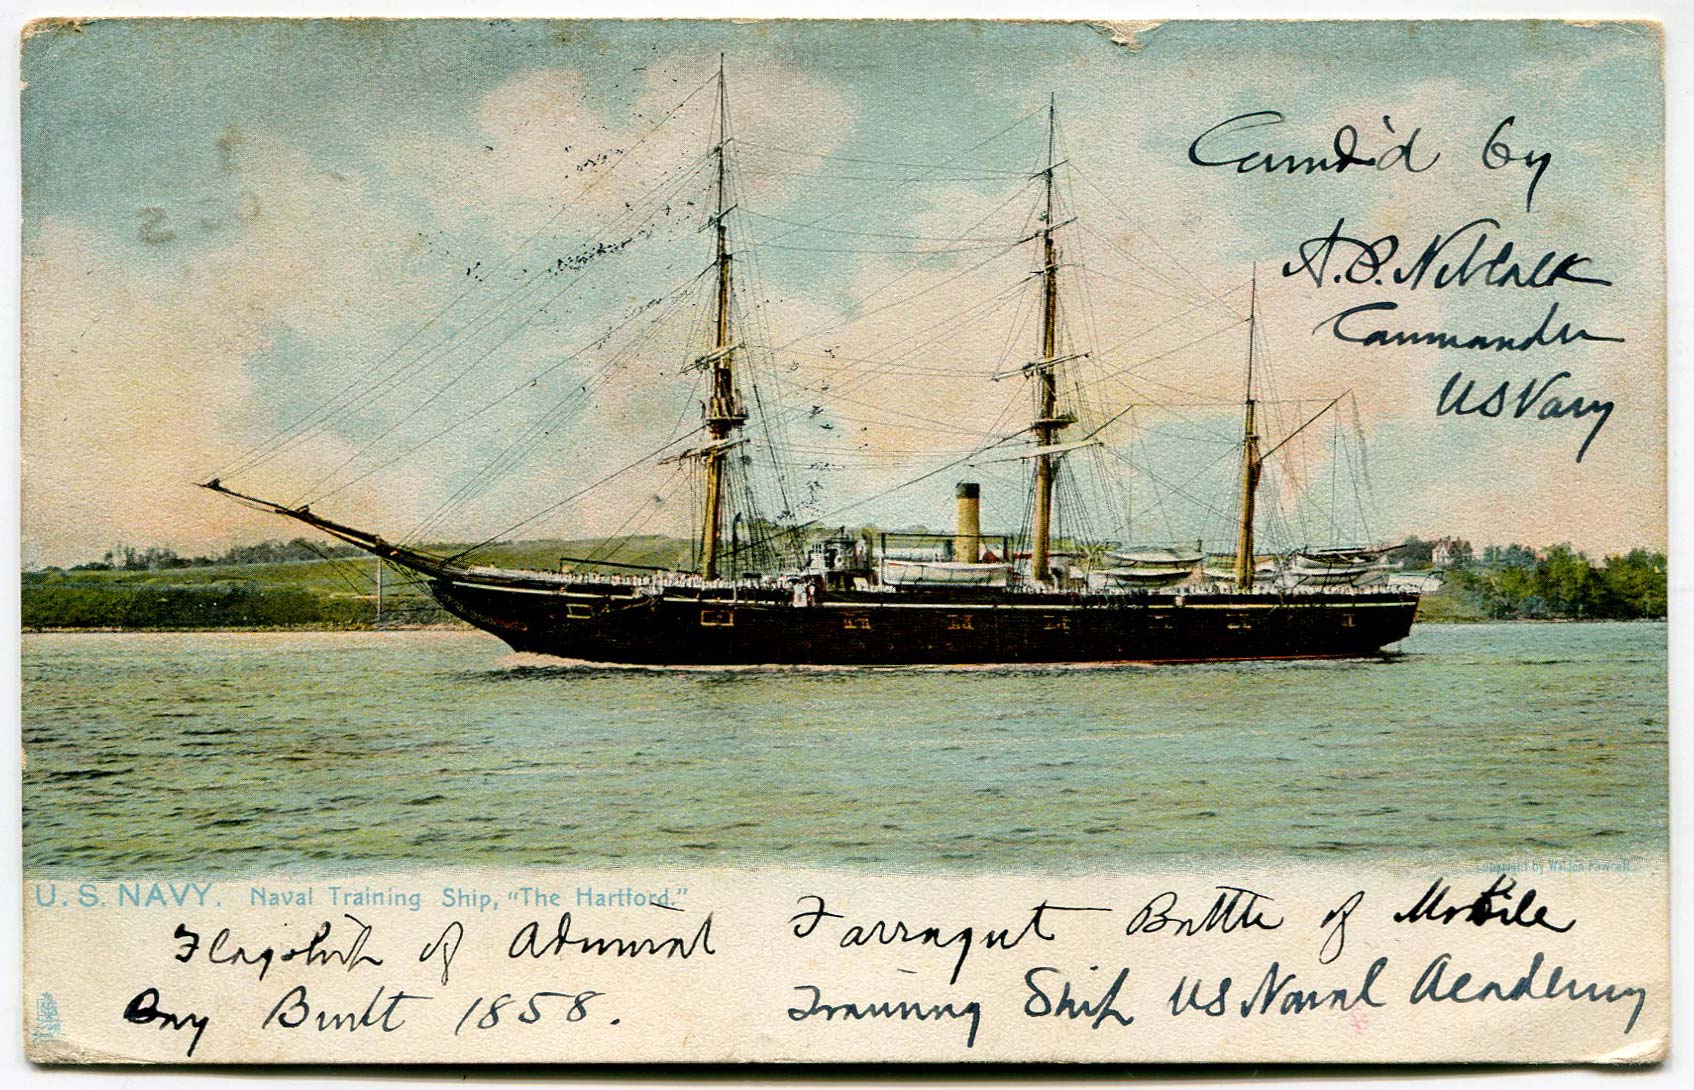 Comd'd by
A.P. Niblack
Commander
US Navy
Copyright by Waldon Fawcett.
U. S. NAVY. Naval Training Ship, "The Hartford."
Flagship of Admiral Farragut Battle of Mobile
Bay Built 1858. Training Ship US Naval Academy